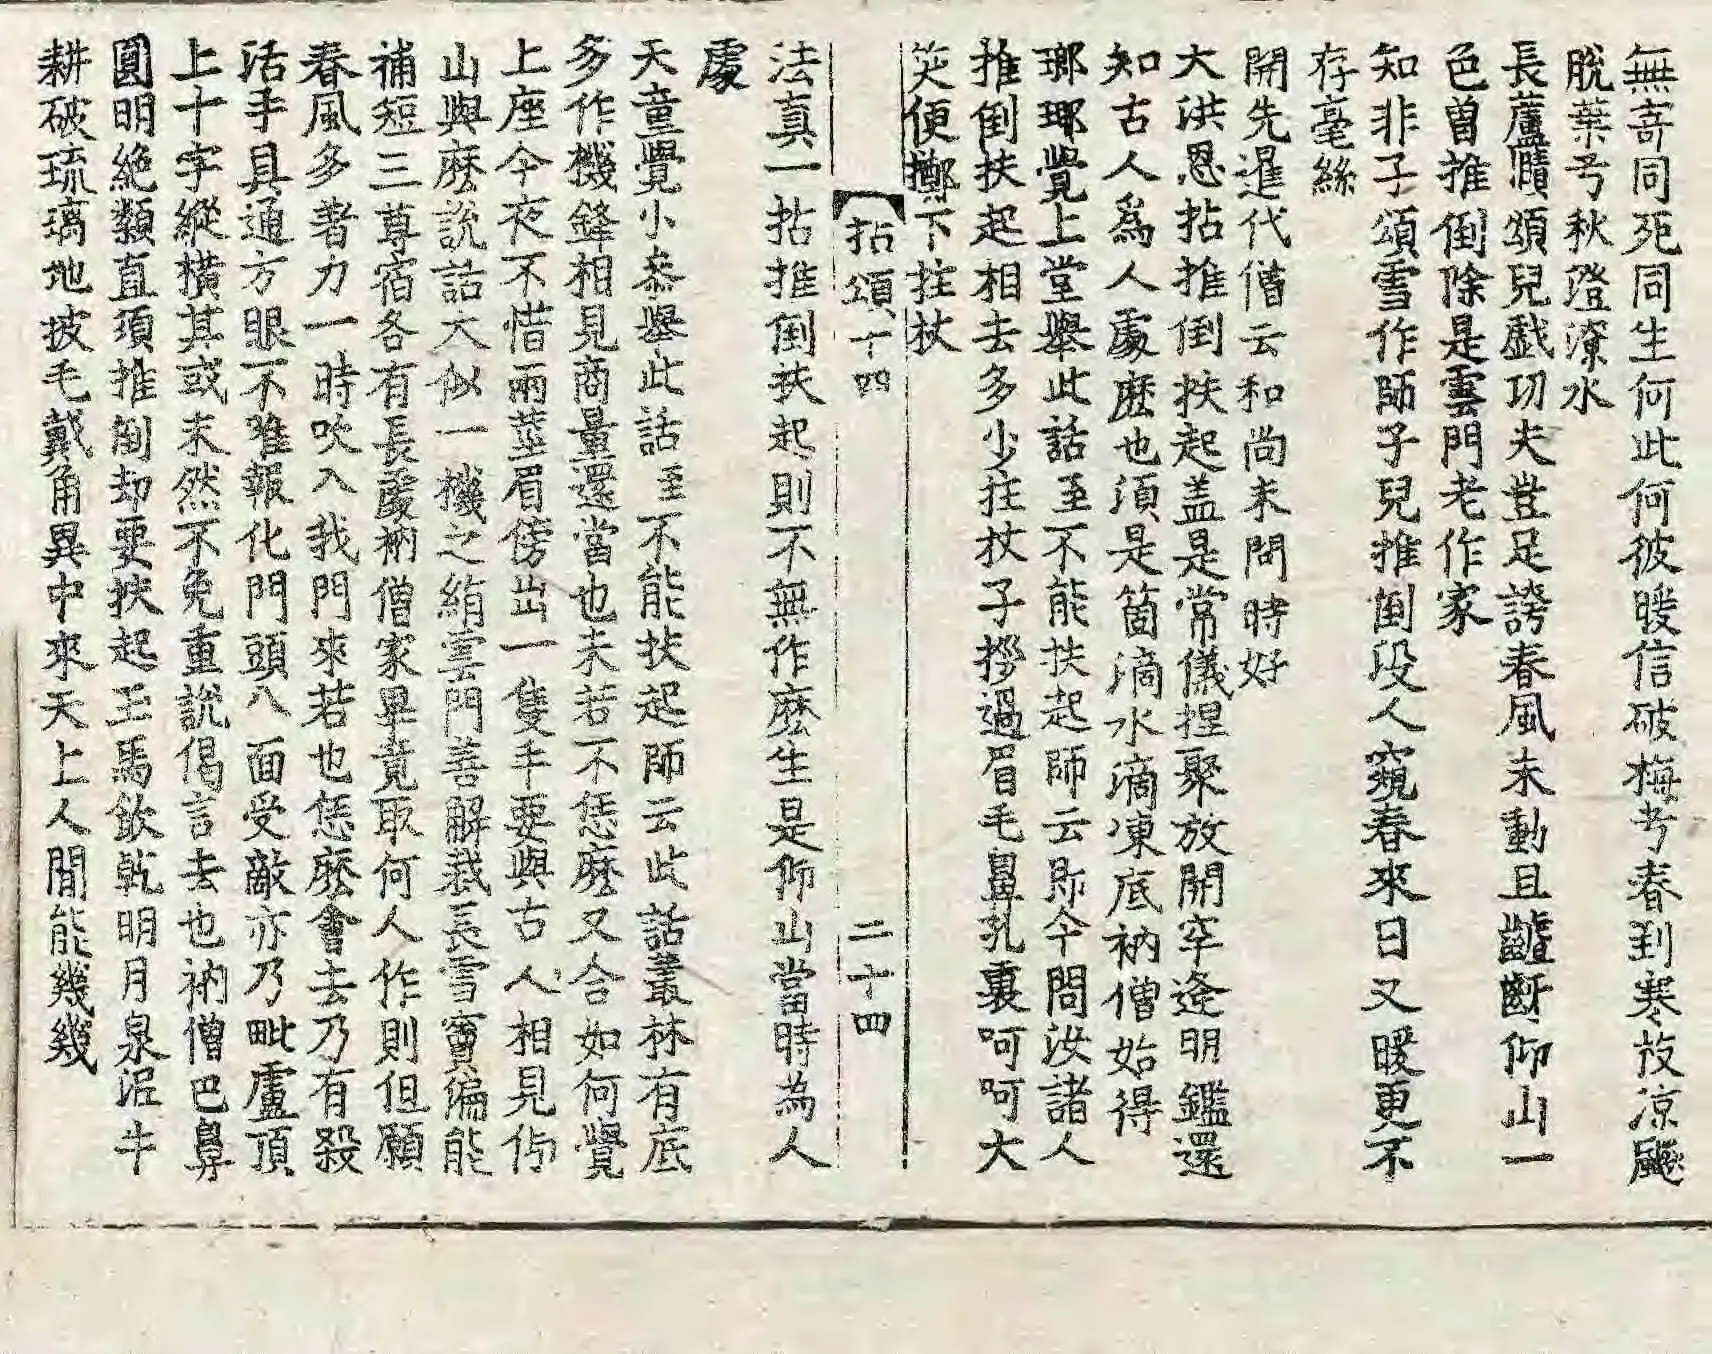 無竒同死同生何此何彼暖信破梅兮春到寒枝凉飈
脫葉兮秋澄潦水
長蘆賾頌兒戲功夫豈足誇春風未動且齟齗仰山一
色曾推倒除是雲門老作家
知非子頌雪作師子兒推倒段人窺春來日又暖更不
存毫絲
開先暹代僧云和尚未問時好
大洪恩拈推倒扶起盖是常儀揑聚放開罕逢明鑑還
知古人爲人處麽也須是箇滴水滴凍底衲僧始得
瑯琊覺上堂舉此話至不能扶起師云即今問汝諸人
推倒扶起相去多少拄杖子拶過眉毛鼻孔裏呵呵大
笑便擲下拄杖
拈頌十四 二十四
法真一拈推倒扶起則不無作麽生是仰山當時為人
處
天童覺小叅舉此話至不能扶起師云此話叢林有底
多作機鋒相見商量還當也未若不恁麽又合如何覺
上座今夜不惜兩莖眉傍出一隻手要與古人相見仰
山與麽說話大似一機之絹雲門善解裁長雪竇偏能
補短三尊宿各有長處衲僧家畢竟取何人作則但願
春風多著力一時吹入我門來若也恁麽會去乃有殺
活手具通方眼不唯報化門頭八面受敵亦乃毗盧頂
上十字縱橫其或未然不免重說偈言去也衲僧巴鼻
圓明絶類直須推倒却要扶起玉馬飮乾明月泉泥牛
耕破琉璃地披毛戴角異中來天上人間能幾幾